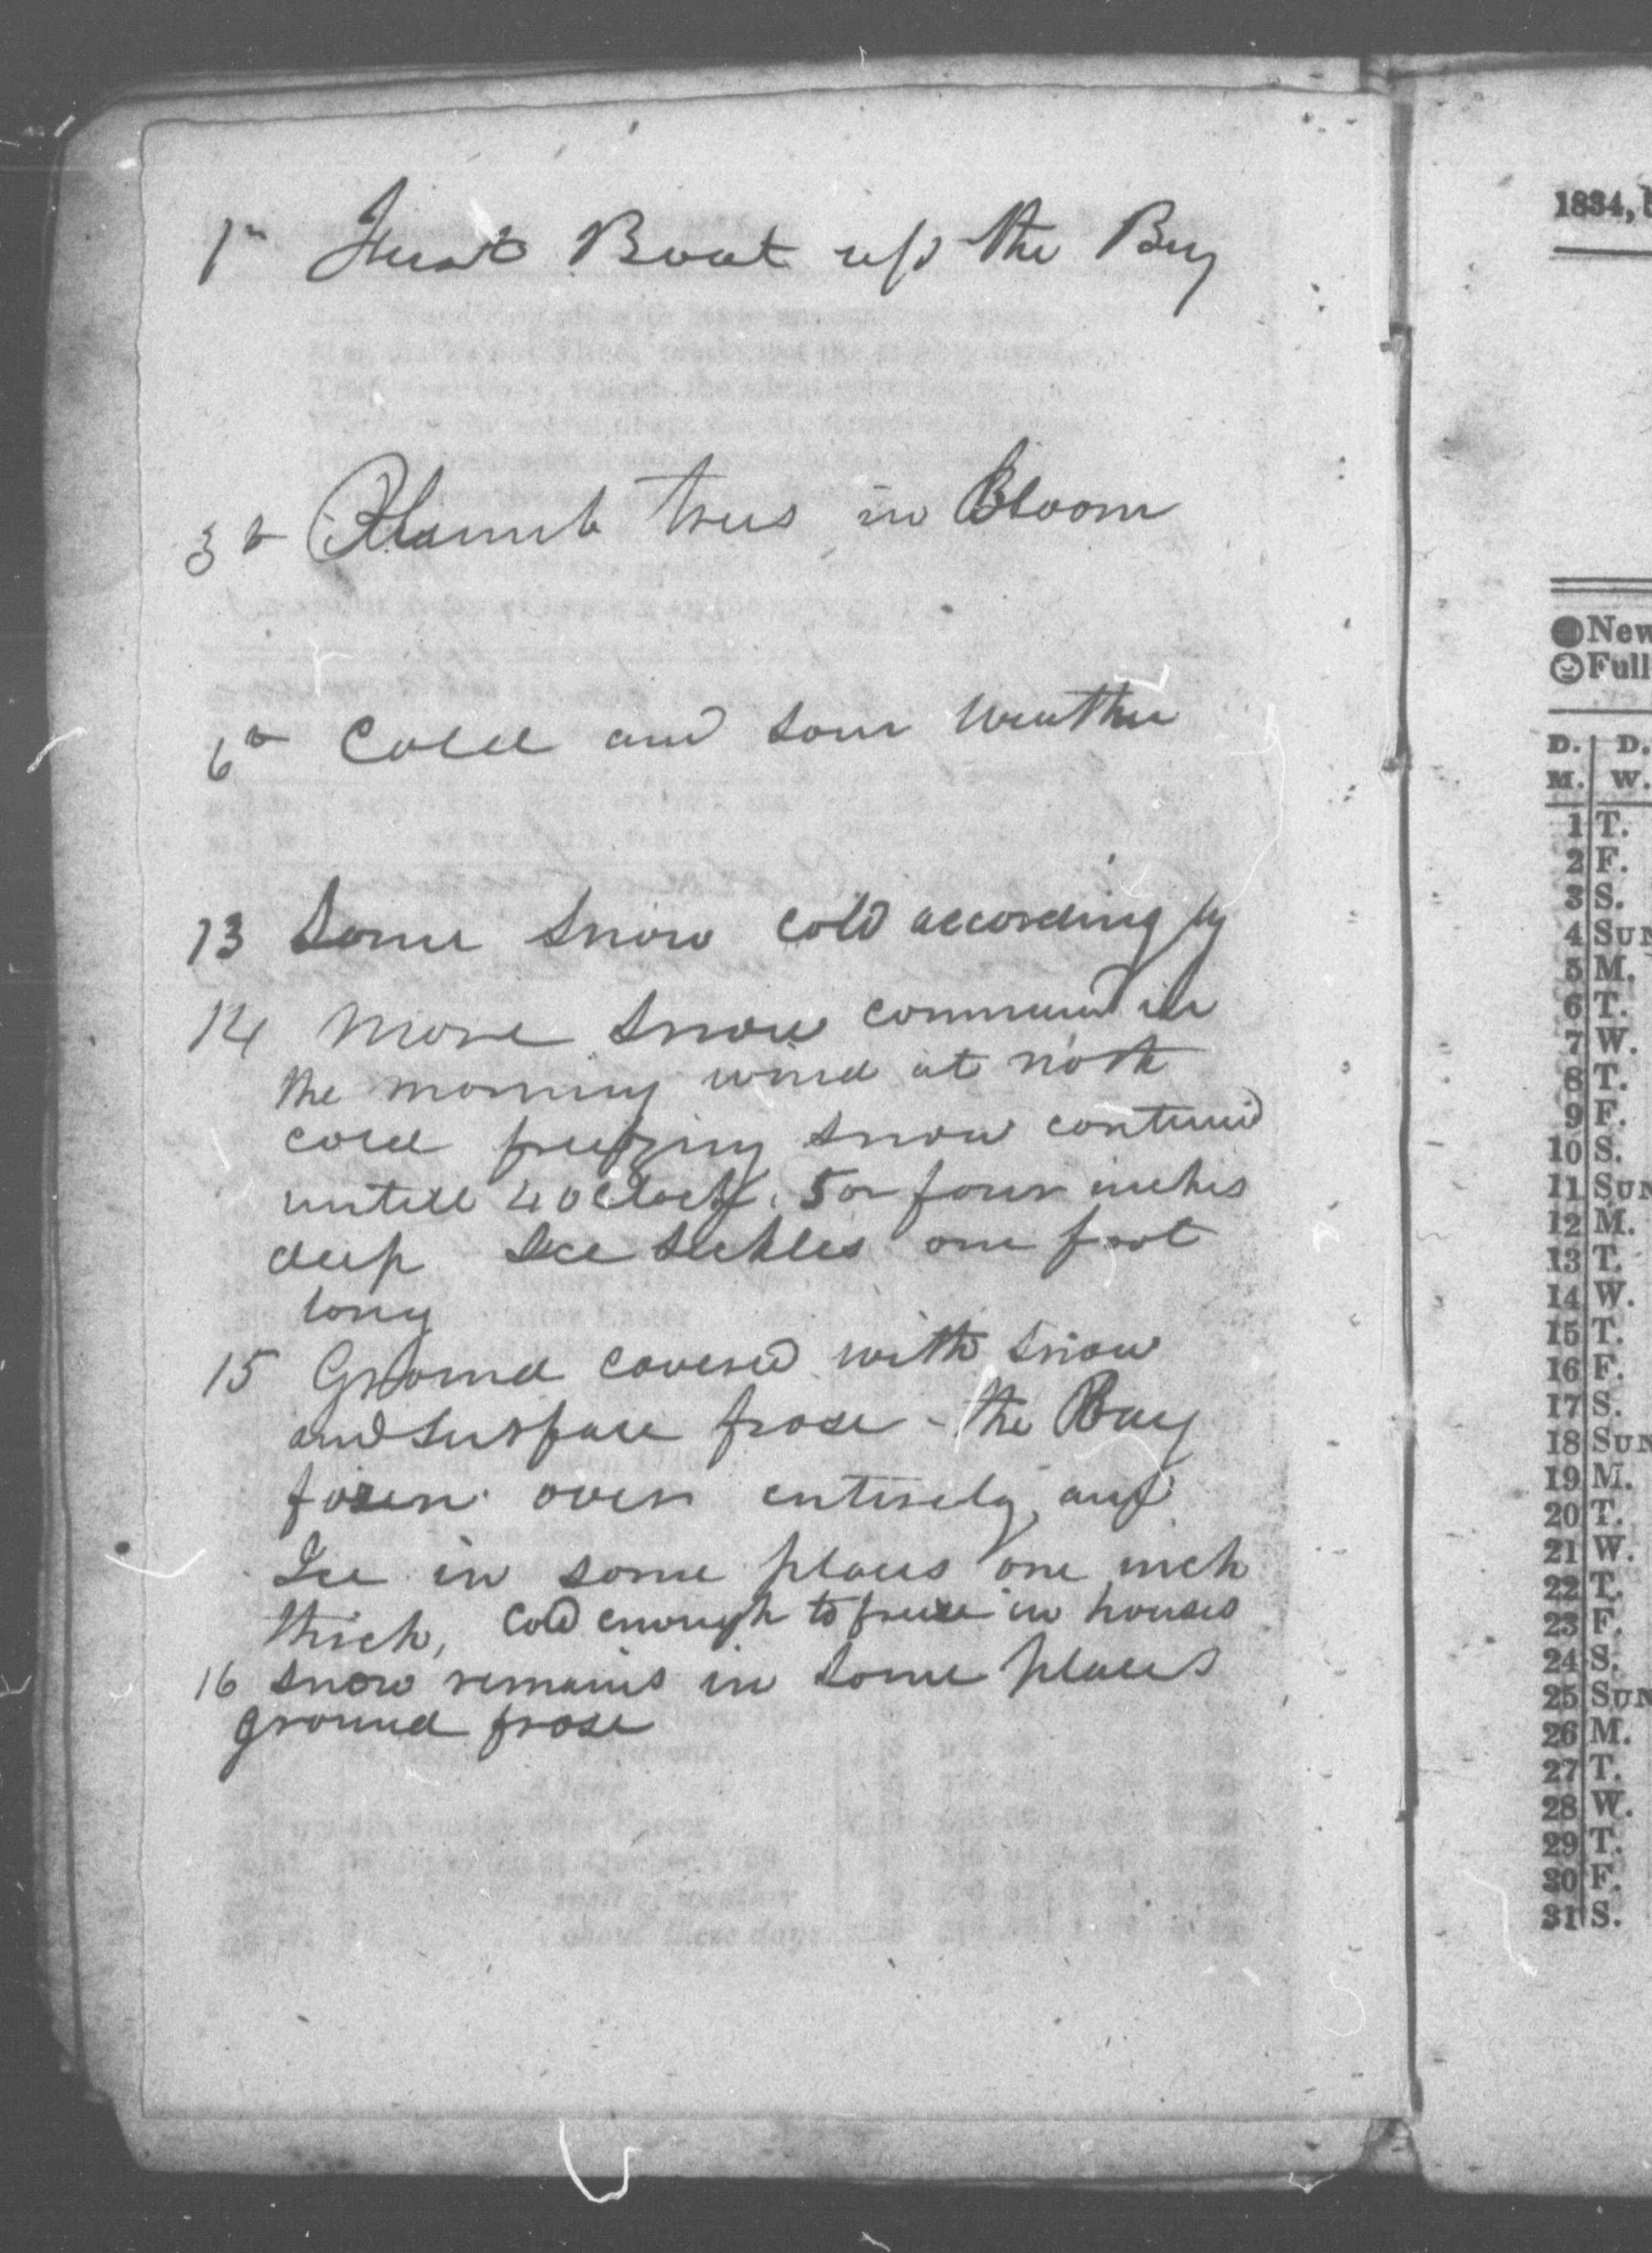 1st First Boat up the Bay
3d Plumb trees in Bloom
6th Cold and sour weather
13 Some snow cold accordingly
14 More snow commencd in
the morning wind at noth
cold freezing snow continuid
untill 4 oClock. 5 or four inches
deep Ice sickles one foot
long
15 Ground coverd with snow
and surface frose - the Bay
frosen over entirely, and
Ice in some places one inch
thick, cold enough to freeze in houses
16 snow remains in some places
ground frose
1834,
New
Full
D. D.
M. W.
1 T.
2 F.
3 S.
4 SUN
5 M.
6 T.
7 W.
8 T.
9 F.
10 S.
11 SUN
12 M.
13 T.
14 W.
15 T.
16 F.
17 S.
18 SUN
19 M.
20 T.
21 W.
22 T.
23 F.
24 S.
25 SUN
26 M.
27 T.
28 W.
29 T.
30 F.
31 S.